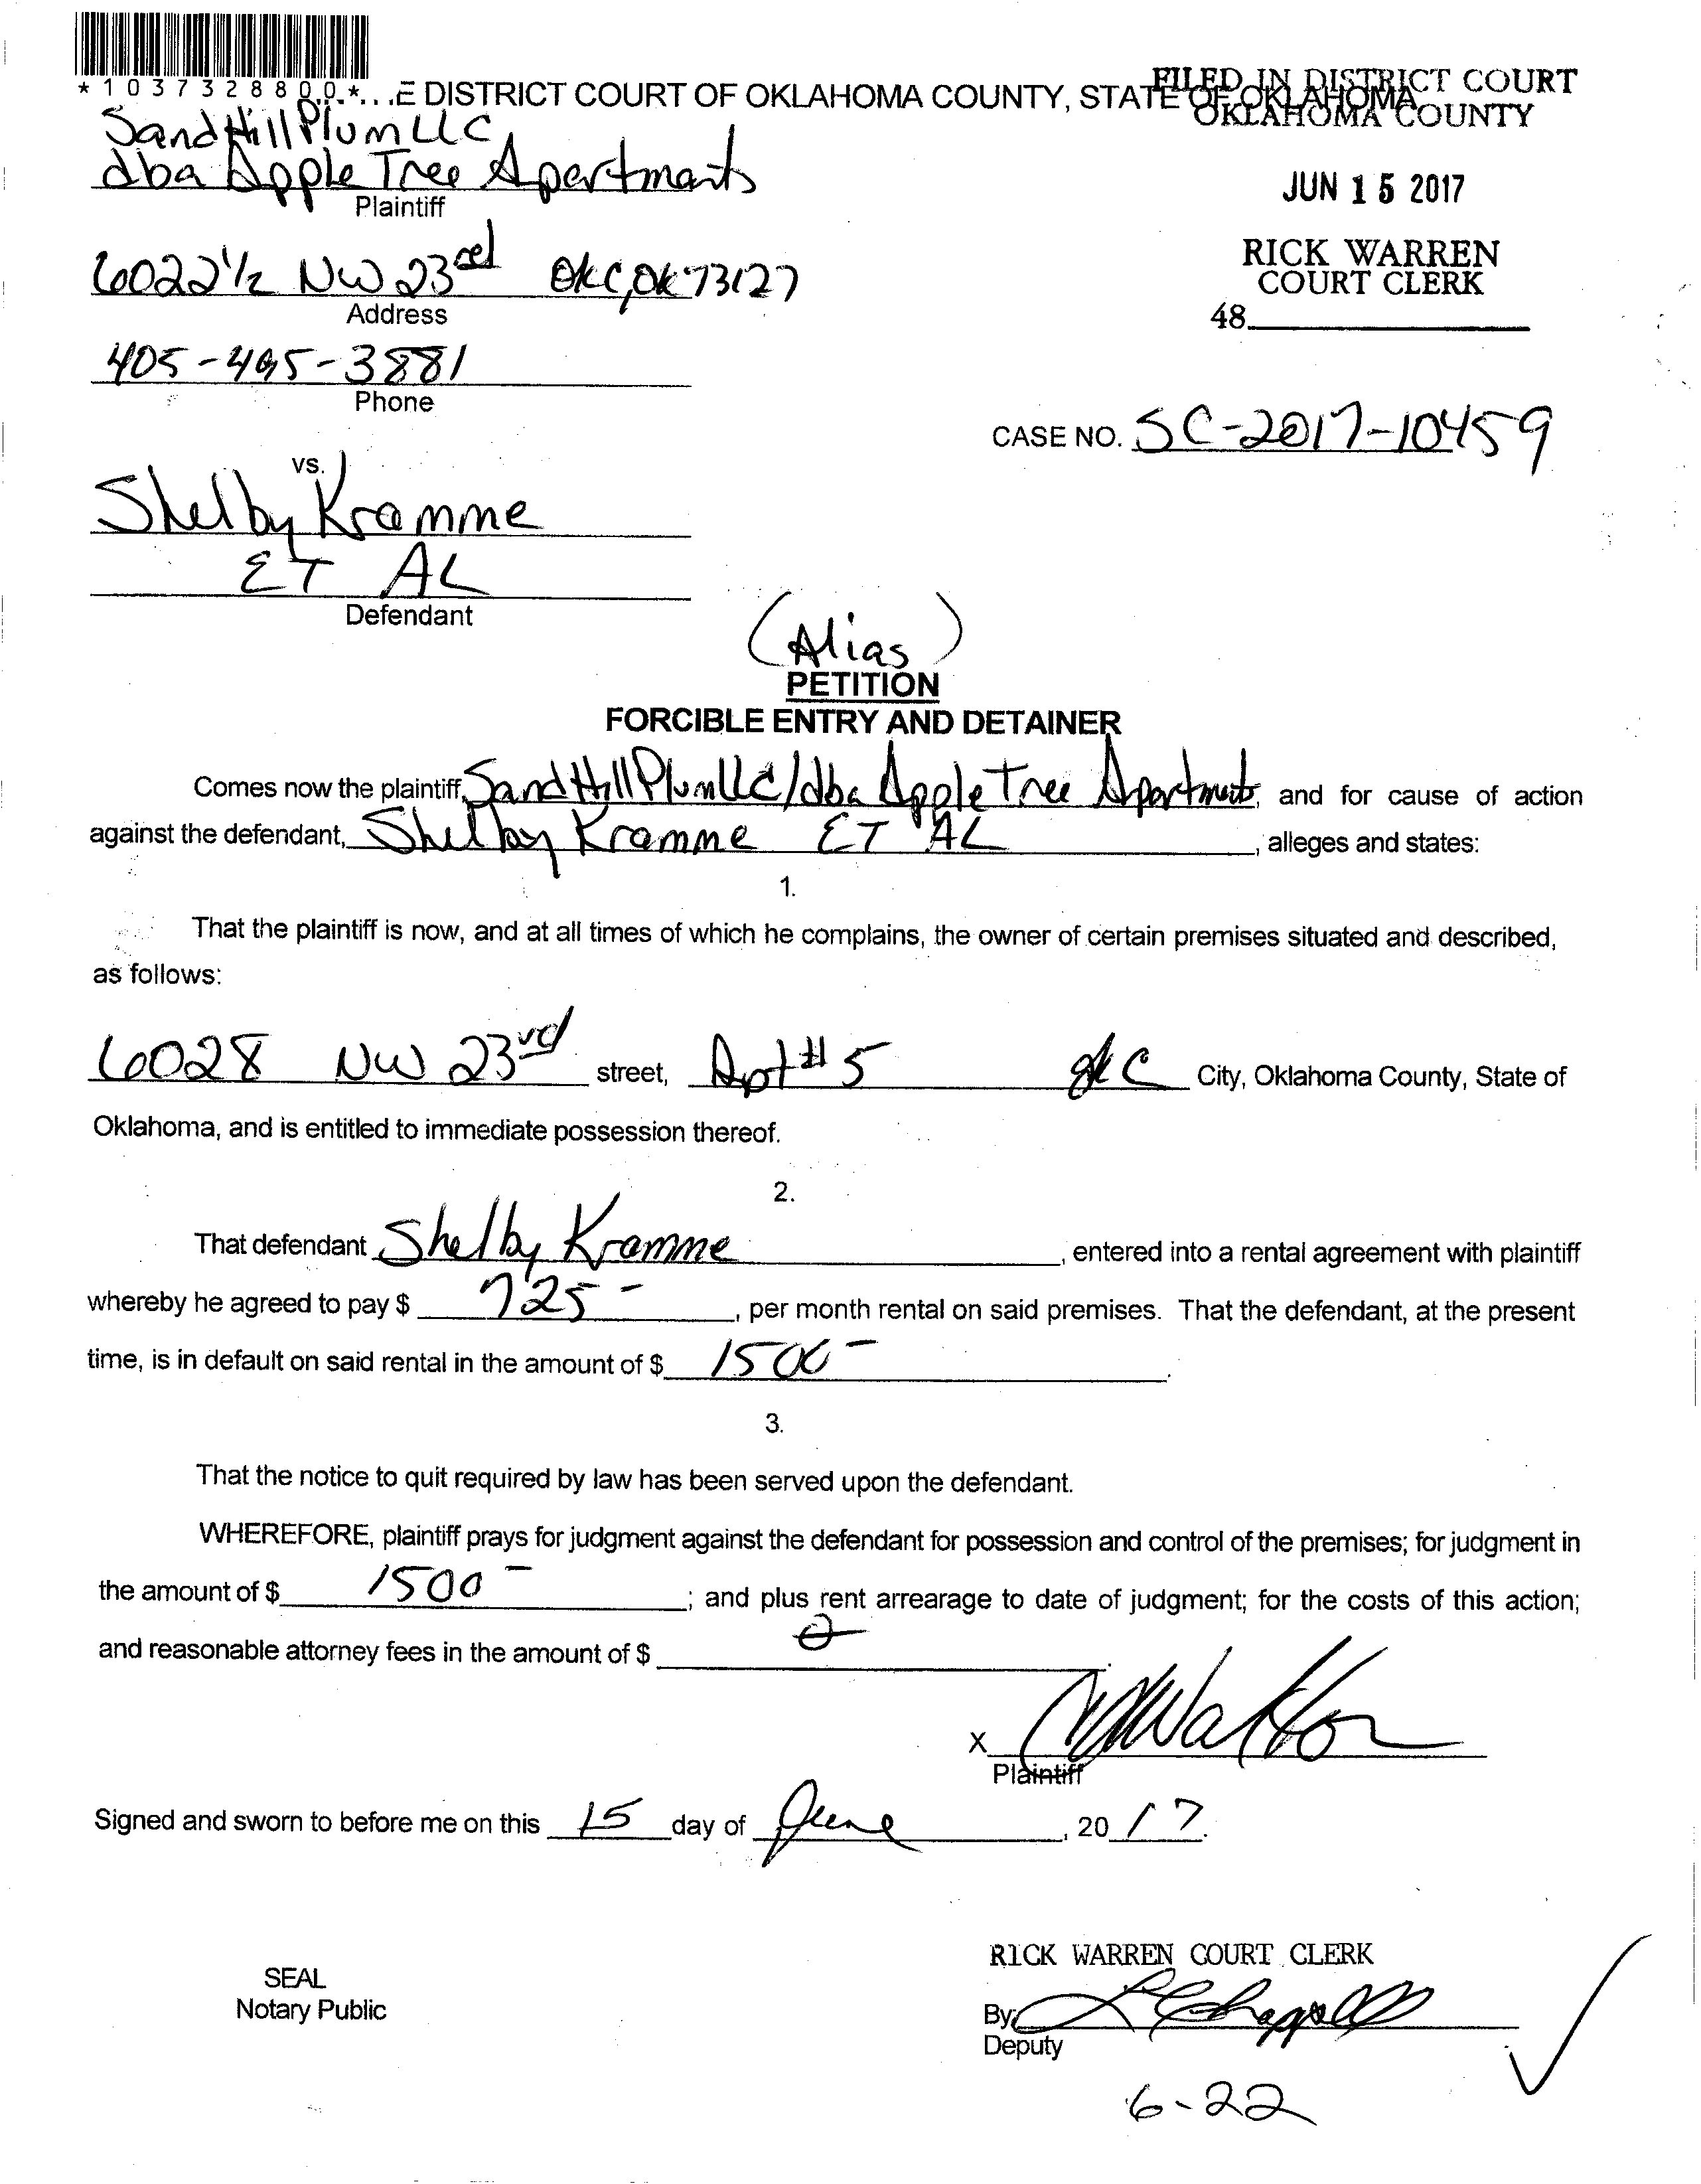 *1037328800*
E DISTRICT COURT OF OKLAHOMA COUNTY, STATE OF OKLAHOMA
FILED IN DISTRICT COURT
OKLAHOMA COUNTY
JUN 15 2017
RICK WARREN
COURT CLERK
48
Sand Hill Plum LLC
dba Apple Tree Apartments
Plaintiff
6022 1/2 NW 23rd OKC, OK 73127
Address
405-495-3881
Phone
CASE NO. SC-2017-10459
vs.
Shelby Kramme
ET AL
Defendant
(Alias)
PETITION
FORCIBLE ENTRY AND DETAINER
Comes now the plaintiff, Sand Hill Plum LLC/dba Apple Tree Apartments, and for cause of action
against the defendant, Shelby Kramme ET AL, alleges and states:
1.
That the plaintiff is now, and at all times of which he complains, the owner of certain premises situated and described,
as follows:
6028 NW 23rd street, Apt #5 OKC City, Oklahoma County, State of
Oklahoma, and is entitled to immediate possession thereof.
2.
That defendant Shelby Kramme, entered into a rental agreement with plaintiff
whereby he agreed to pay $ 725-, per month rental on said premises. That the defendant, at the present
time, is in default on said rental in the amount of $ 1500-.
3.
That the notice to quit required by law has been served upon the defendant.
WHEREFORE, plaintiff prays for judgment against the defendant for possession and control of the premises; for judgment in
the amount of $ 1500-; and plus rent arrearage to date of judgment; for the costs of this action;
and reasonable attorney fees in the amount of $ 0.
X
Plaintiff
Signed and sworn to before me on this 15 day of June, 20 17.
SEAL
Notary Public
RICK WARREN COURT CLERK
By
Deputy
6-22